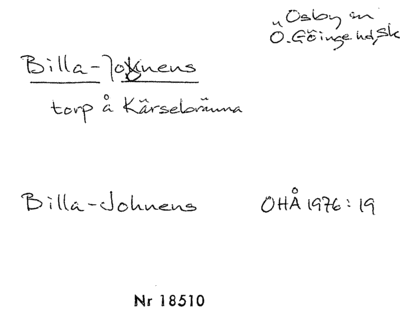 „Osby sn
Ö. Göinge hd, Sk
Billa-Johnens
torp å Kärsebränna
Billa-Johnens OHÅ 1976:19
Nr 18510